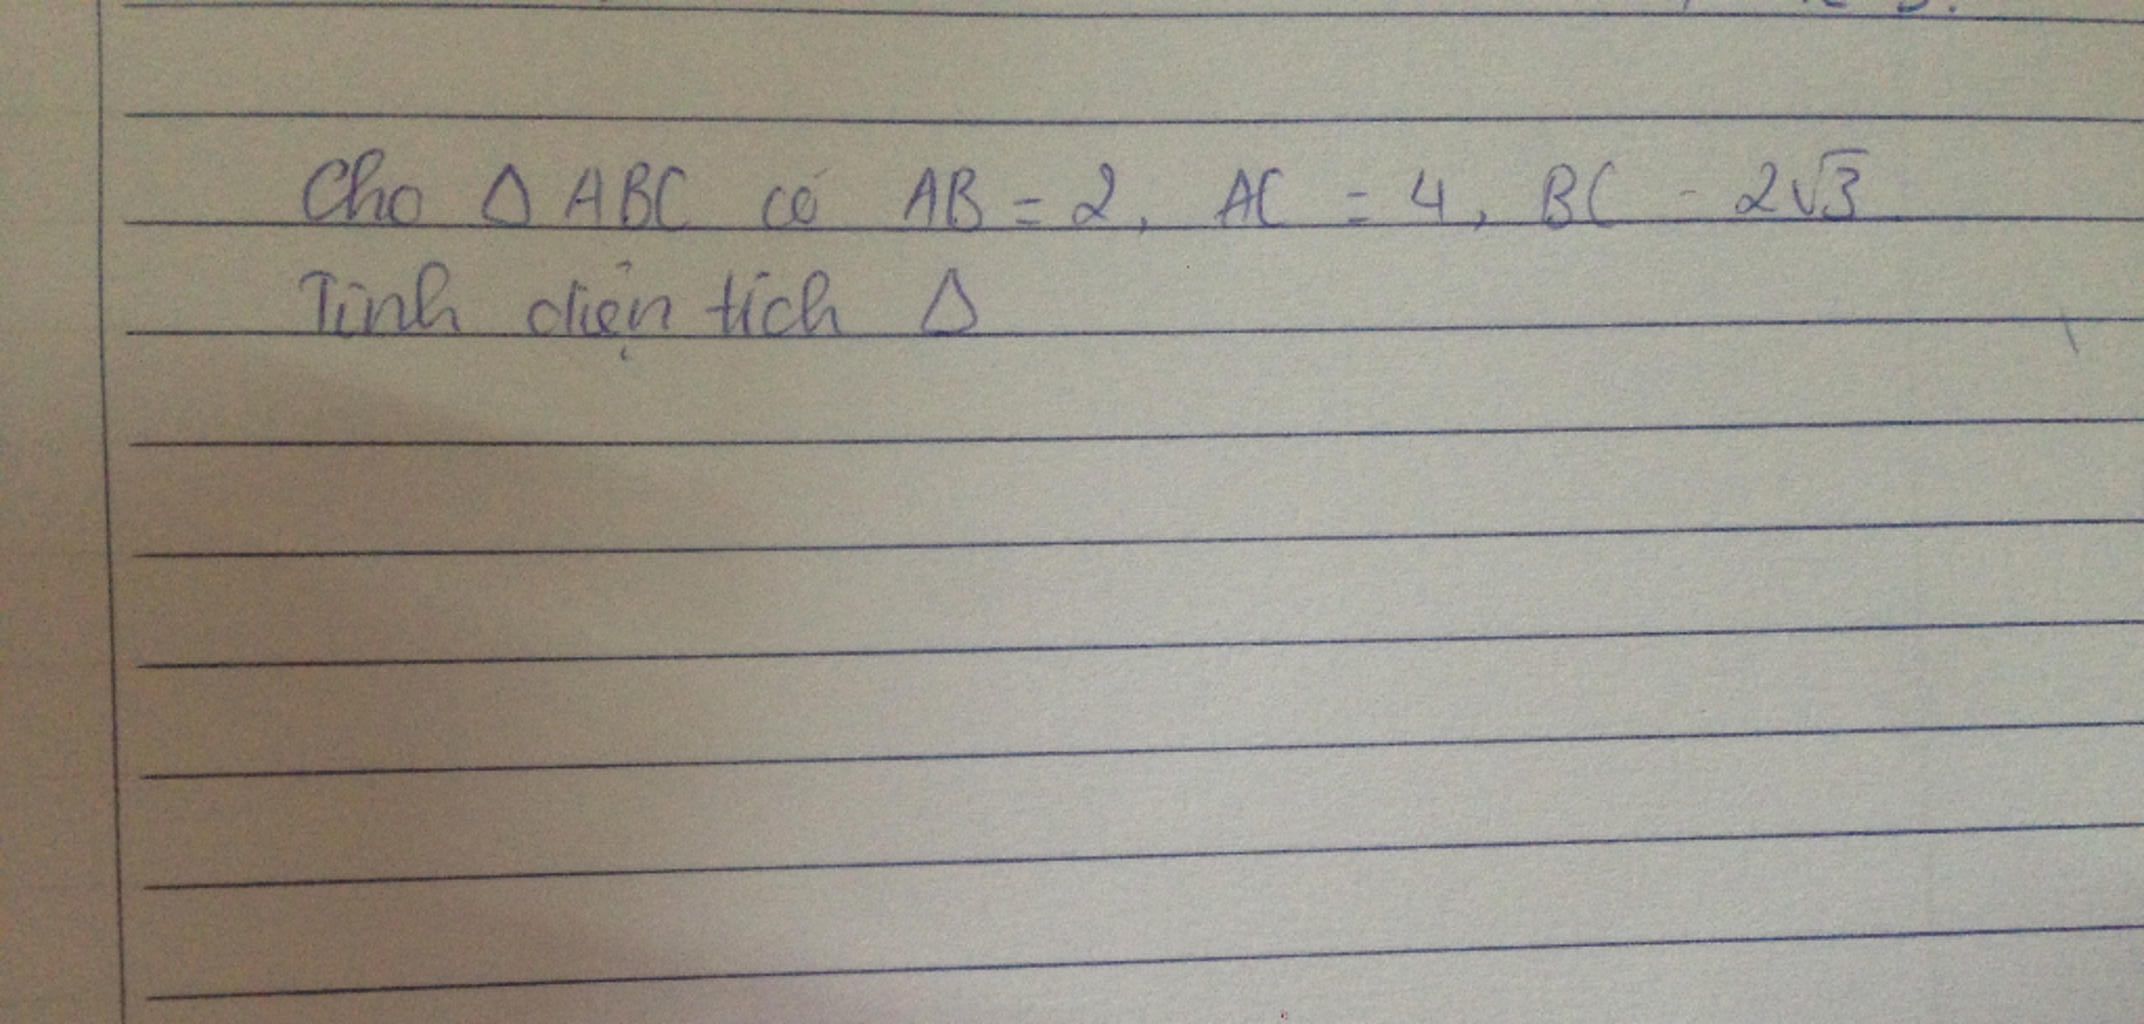 Cho Δ ABC có AB = 2, AC = 4, BC = 2√3
Tính diện tích Δ